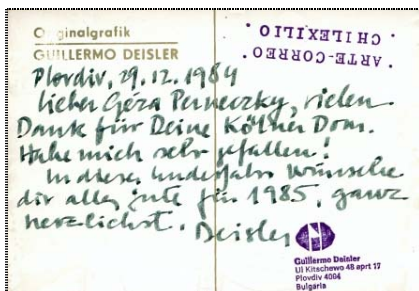 Originalgrafik
GUILLERMO DEISLER
ARTE-CORREO.
CHILEXILIO.
Plovdiv, 29.12.1984
lieber Géza Perneczky, vielen
Dank für Deine Kölner Dom.
Habe mich sehr gefallen!
In diesen wünsche
dir alles gute für 1985, ganz
herzlichst. Deisler
Guillermo Deisler
Ul Kitschewo 48 aprt 17
Plovdiv 4004
Bulgaria